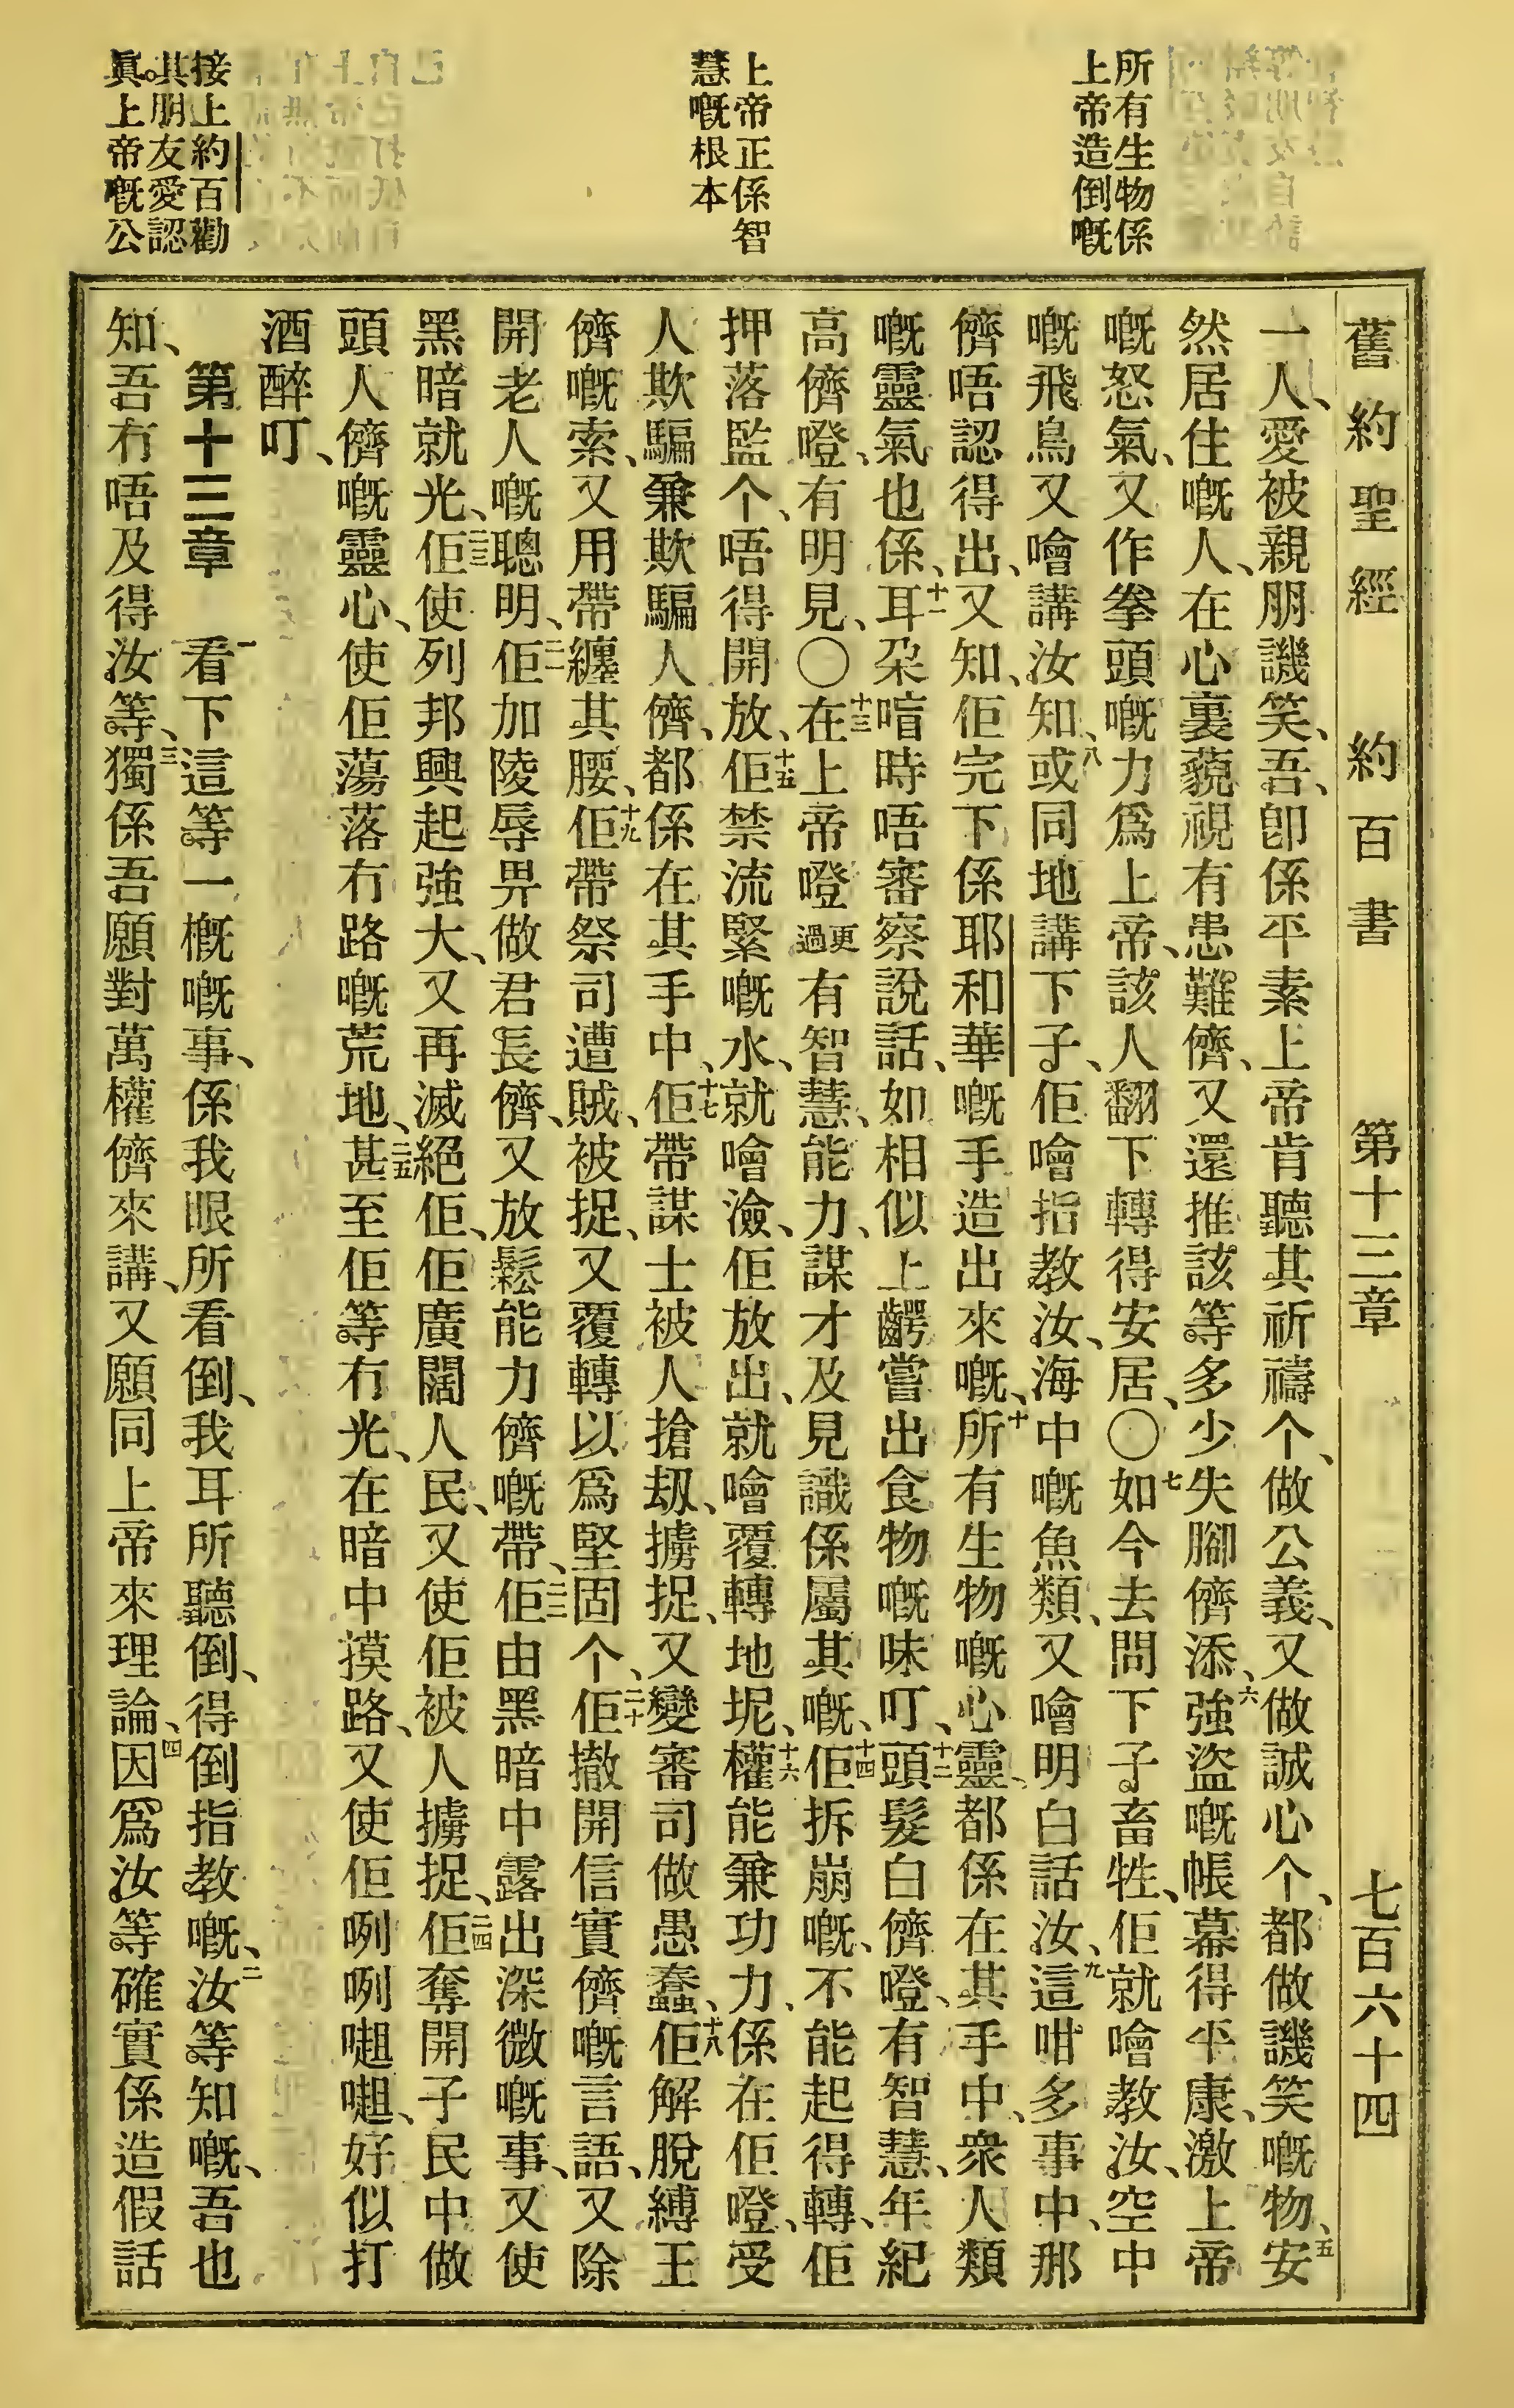 所有生物係
上帝造倒嘅
上帝正係智
慧嘅根本
接上約百勸
其朋友愛認
眞上帝嘅公
舊約聖經　約百書　第十三章　七百六十四
一人、愛被親朋譏笑、吾、卽係平素上帝肯聽其祈禱个、做公義、又做誠心个、都做譏笑嘅物、五安
然居住嘅人、在心裏藐視有患難儕、又還推該等多少失腳儕添、六強盜嘅帳幕得平康、激上帝
嘅怒氣、又作拳頭嘅力爲上帝、該人翻下轉得安居、〇七如今去問下子畜牲、佢就噲教汝、空中
嘅飛鳥又噲講汝知、八或同地講下子、佢噲指教汝、海中嘅魚類、又噲明白話汝、九這咁多事中、那
儕唔認得出、又知、佢完下係耶和華嘅手造出來嘅、十所有生物嘅心靈、都係在其手中、衆人類
嘅靈氣也係、十一耳朶喑時唔審察說話、如相似上齶嘗出食物嘅味叮、十二頭髮白儕噔、有智慧、年紀
高儕噔、有明見、〇十三在上帝噔更過有智慧、能力、謀才及見識係屬其嘅、十四佢拆崩嘅、不能起得轉、佢
押落監个、唔得開放、十五佢禁流緊嘅水、就噲澰、佢放出、就噲覆轉地坭、十六權能兼功力、係在佢噔、受
人欺騙兼欺騙人儕、都係在其手中、十七佢帶謀士被人搶刼、擄捉、又變審司做愚蠢、十八佢解脫縛王
儕嘅索、又用帶纏其腰、十九佢帶祭司遭賊、被捉、又覆轉以爲堅固个、二十佢撤開信實儕嘅言語、又除
開老人嘅聰明、二一佢加陵辱畀做君長儕、又放鬆能力儕嘅帶、二二佢由黑暗中露出深微嘅事、又使
黑暗就光、二三佢使列邦興起強大、又再滅絕佢、佢廣闊人民、又使佢被人擄捉、二四佢奪開子民中做
頭人儕嘅靈心、使佢蕩落冇路嘅荒地、二五甚至佢等冇光、在暗中摸路、又使佢咧咧𠻝𠻝、好似打
酒醉叮、
第十三章　一看下這等一概嘅事、係我眼所看倒、我耳所聽倒、得倒指教嘅、二汝等知嘅、吾也
知、吾冇唔及得汝等、三獨係吾願對萬權儕來講、又願同上帝來理論、四因爲汝等確實係造假話